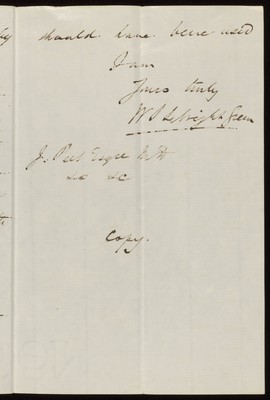 should have been used
I am
Yours truly
W S Sebright Green
J. Peel Esqre M.D
&c &c
Copy.